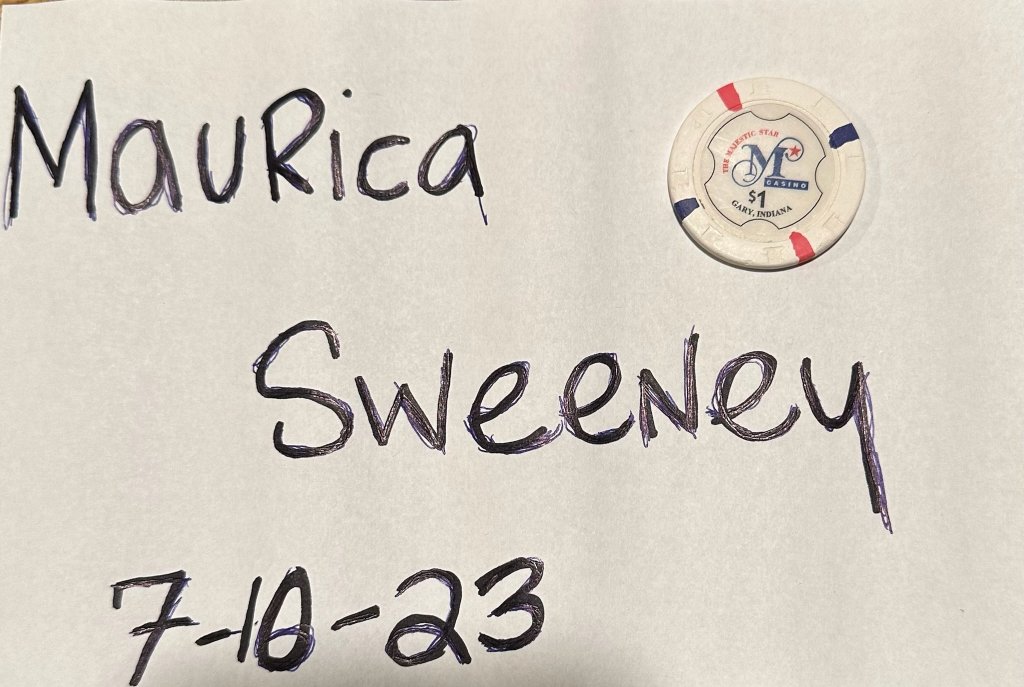 MauRica
THE MAJESTIC STAR
M
CASINO
$1
GARY, INDIANA
Sweeney
7-10-23